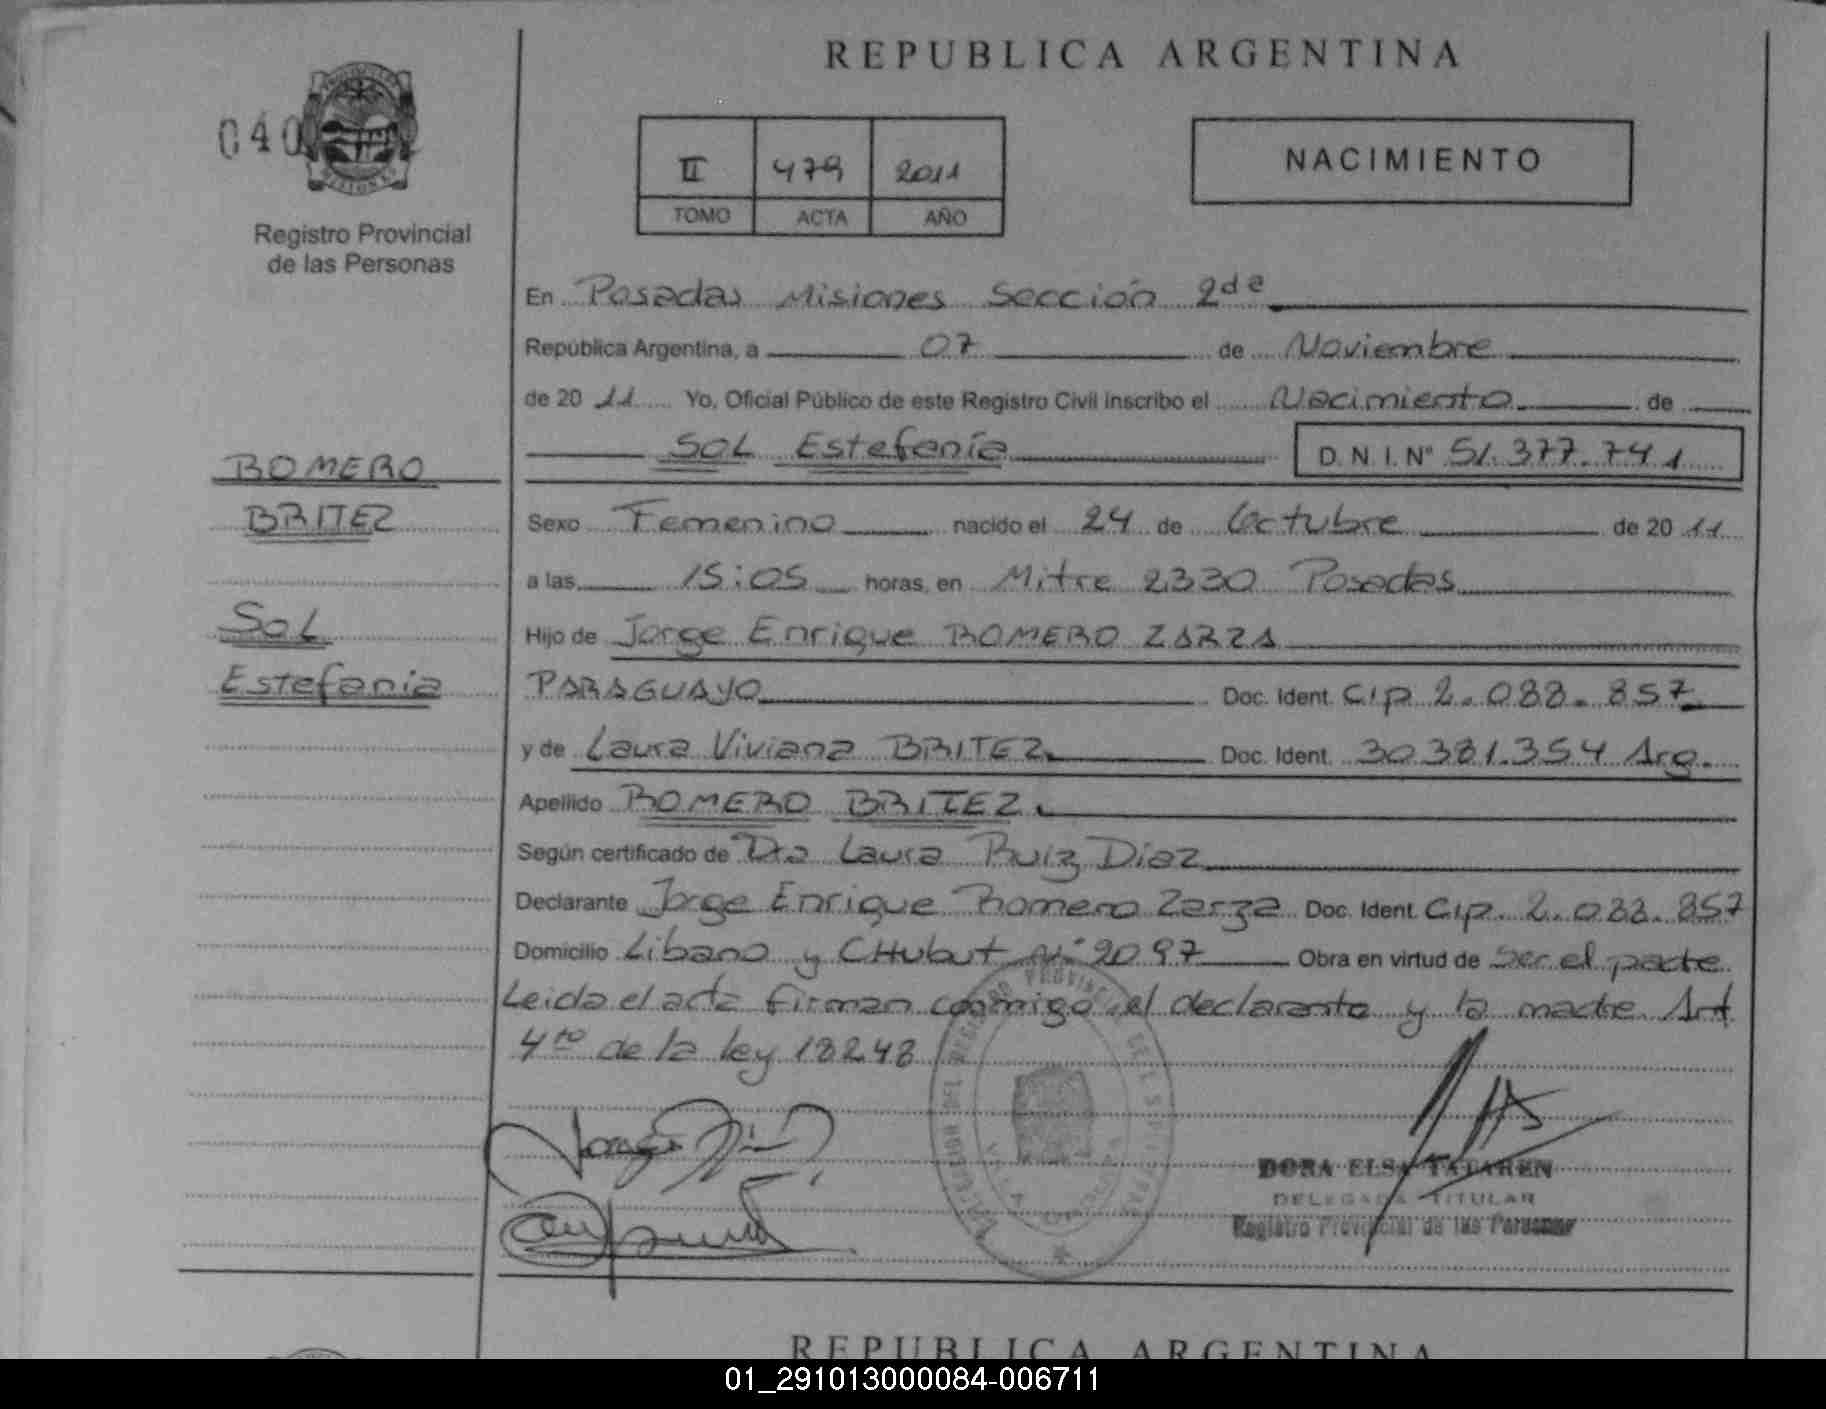 REPUBLICA ARGENTINA
040
II 479 2011
TOMO ACTA AÑO
NACIMIENTO
Registro Provincial
de las Personas
En Posadas Misiones Sección 2da
República Argentina, a 07 de Noviembre
de 2011 Yo, Oficial Público de este Registro Civil inscribo el Nacimiento de
SOL Estefanía D.N.I. Nº 51.377.741
ROMERO
BRITEZ
SOL
Estefanía
Sexo Femenino nacido el 24 de Octubre de 2011
a las 15:05 horas, en Mitre 2330 Posadas
Hijo de Jorge Enrique ROMERO ZARZA
PARAGUAYO Doc. Ident. CIP 2.088.857
y de Laura Viviana BRITEZ Doc. Ident. 30381.354 Arg.
Apellido ROMERO BRITEZ
Según certificado de Dra Laura Ruiz Diaz
Declarante Jorge Enrique Romero Zarza Doc. Ident. CIP. 2.088.857
Domicilio Libano y CHubut Nº 2097 Obra en virtud de Ser el padre
Leida el acta firman conmigo el declarante y la madre Art
4to de la ley 18248
DORA ELSA TATAREN
DELEGADA TITULAR
Registro Provincial de las Personas
REPUBLICA ARGENTINA
01_291013000084-006711